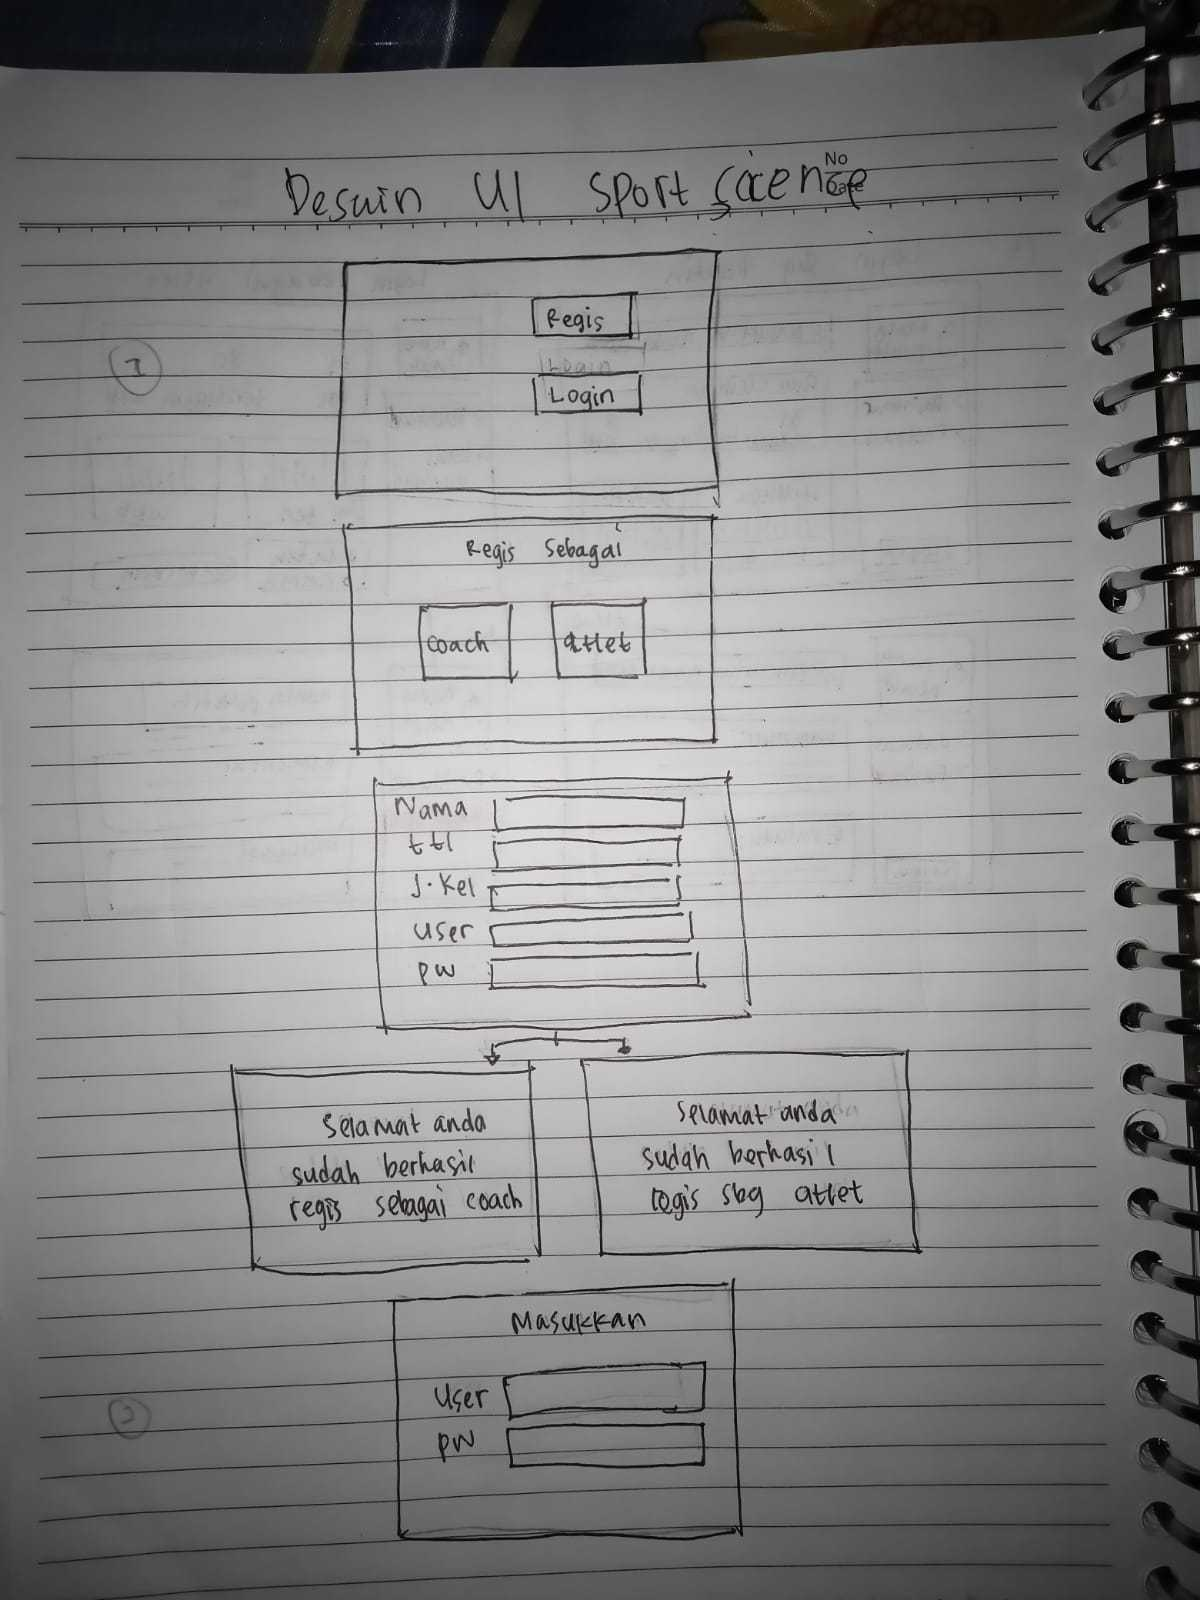 Desain UI Sport Science
No
Date
1
Regis
Login
Login
Regis Sebagai
Coach
atlet
Nama
ttl
J.Kel
User
pw
Selamat anda
sudah berhasil
regis sebagai coach
Selamat anda
sudah berhasil
regis sbg atlet
Masukkan
2
User
pw